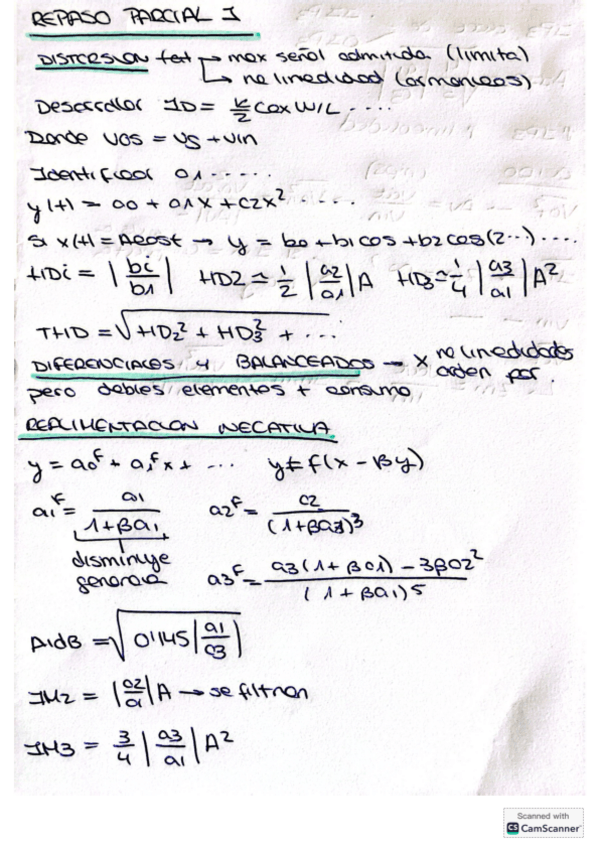 REPASO PARCIAL I
DISTORSION fert → max señal admitida (limita)
→ no linealidad (armonicos)
Desarrollar ID = K/2 Cox W/L ....
Donde VGS = VS + Vin
Identificar a1 .....
y(t) = a0 + a1x + a2x² ....
Si x(t) = Acosωt → y = b0 + b1 cos + b2 cos(2...) ....
HDi = |bi/b1| HD2 ≈ 1/2 |a2/a1| A HD3 ≈ 1/4 |a3/a1| A²
THD = √(HD2² + HD3² + ...)
DIFERENCIALES Y BALANCEADOS → X no linealidades
orden par.
pero dobles elementos + consumo
REALIMENTACION NEGATIVA
y = a0^F + a1^F x + ... y = f(x - βy)
a1^F = a1/(1+βa1) a2^F = a2/(1+βa1)³
disminuye
ganancia
a3^F = (a3(1+βa1) - 3βa2²)/(1+βa1)⁵
A1dB = √(0'145 |a1/a3|)
IM2 = |a2/a1| A → se filtran
IM3 = 3/4 |a3/a1| A²
Scanned with
CS CamScanner